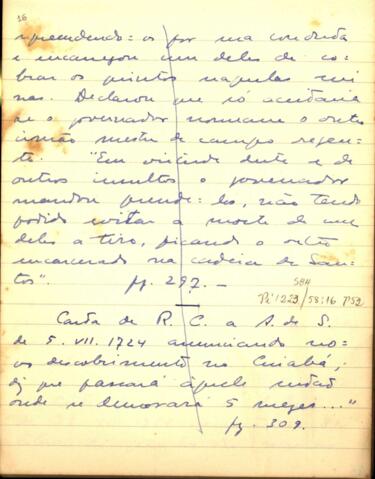 16
repreendendo-os por má conduta
e encarregou um deles de co-
brar os quintos naquelas mi-
nas. Declarou que só aceitaria
se o governador nomeasse o outro
irmão mestre de campo regen-
te. "Em virtude deste e de
outros insultos o governador
mandou prende-los, não tendo
podido evitar a morte de um
deles a tiro, ficando o outro
encarcerado na cadeia de San-
tos". pg. 297. —
Carta de R. C. a A. de S.
de 5. VII. 1724 anunciando no-
vos descobrimentos no Cuiabá;
diz que passará àquele
onde se demorará 5 mezes..."
pg. 309.